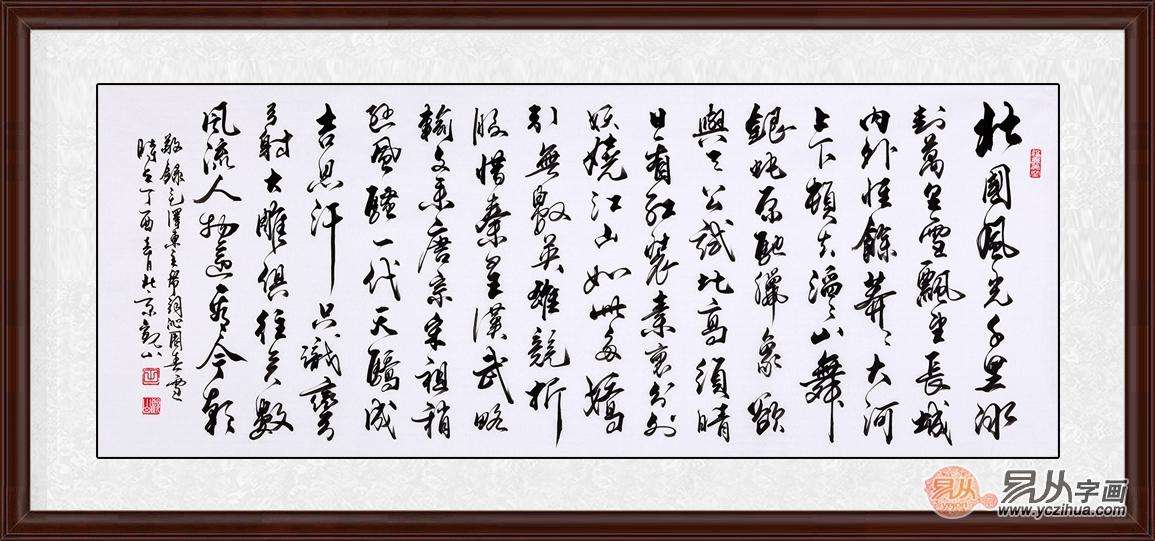 北國風光千里冰
封萬里雪飄望長城
内外惟餘莽々大河
上下頓失滔々山舞
銀蛇原馳臘象欲
與天公試比高須晴
日看紅裝素裹分外
妖嬈江山如此多嬌
引無數英雄競折
腰惜秦皇漢武略
輸文采唐宗宋祖稍
遜風騷一代天驕成
吉思汗只識彎
弓射大雕俱往矣數
風流人物還看今朝
敬錄毛澤東主席詞沁園春雪
時在丁酉春月於京觀山
易从
易从字画
www.yczihua.com